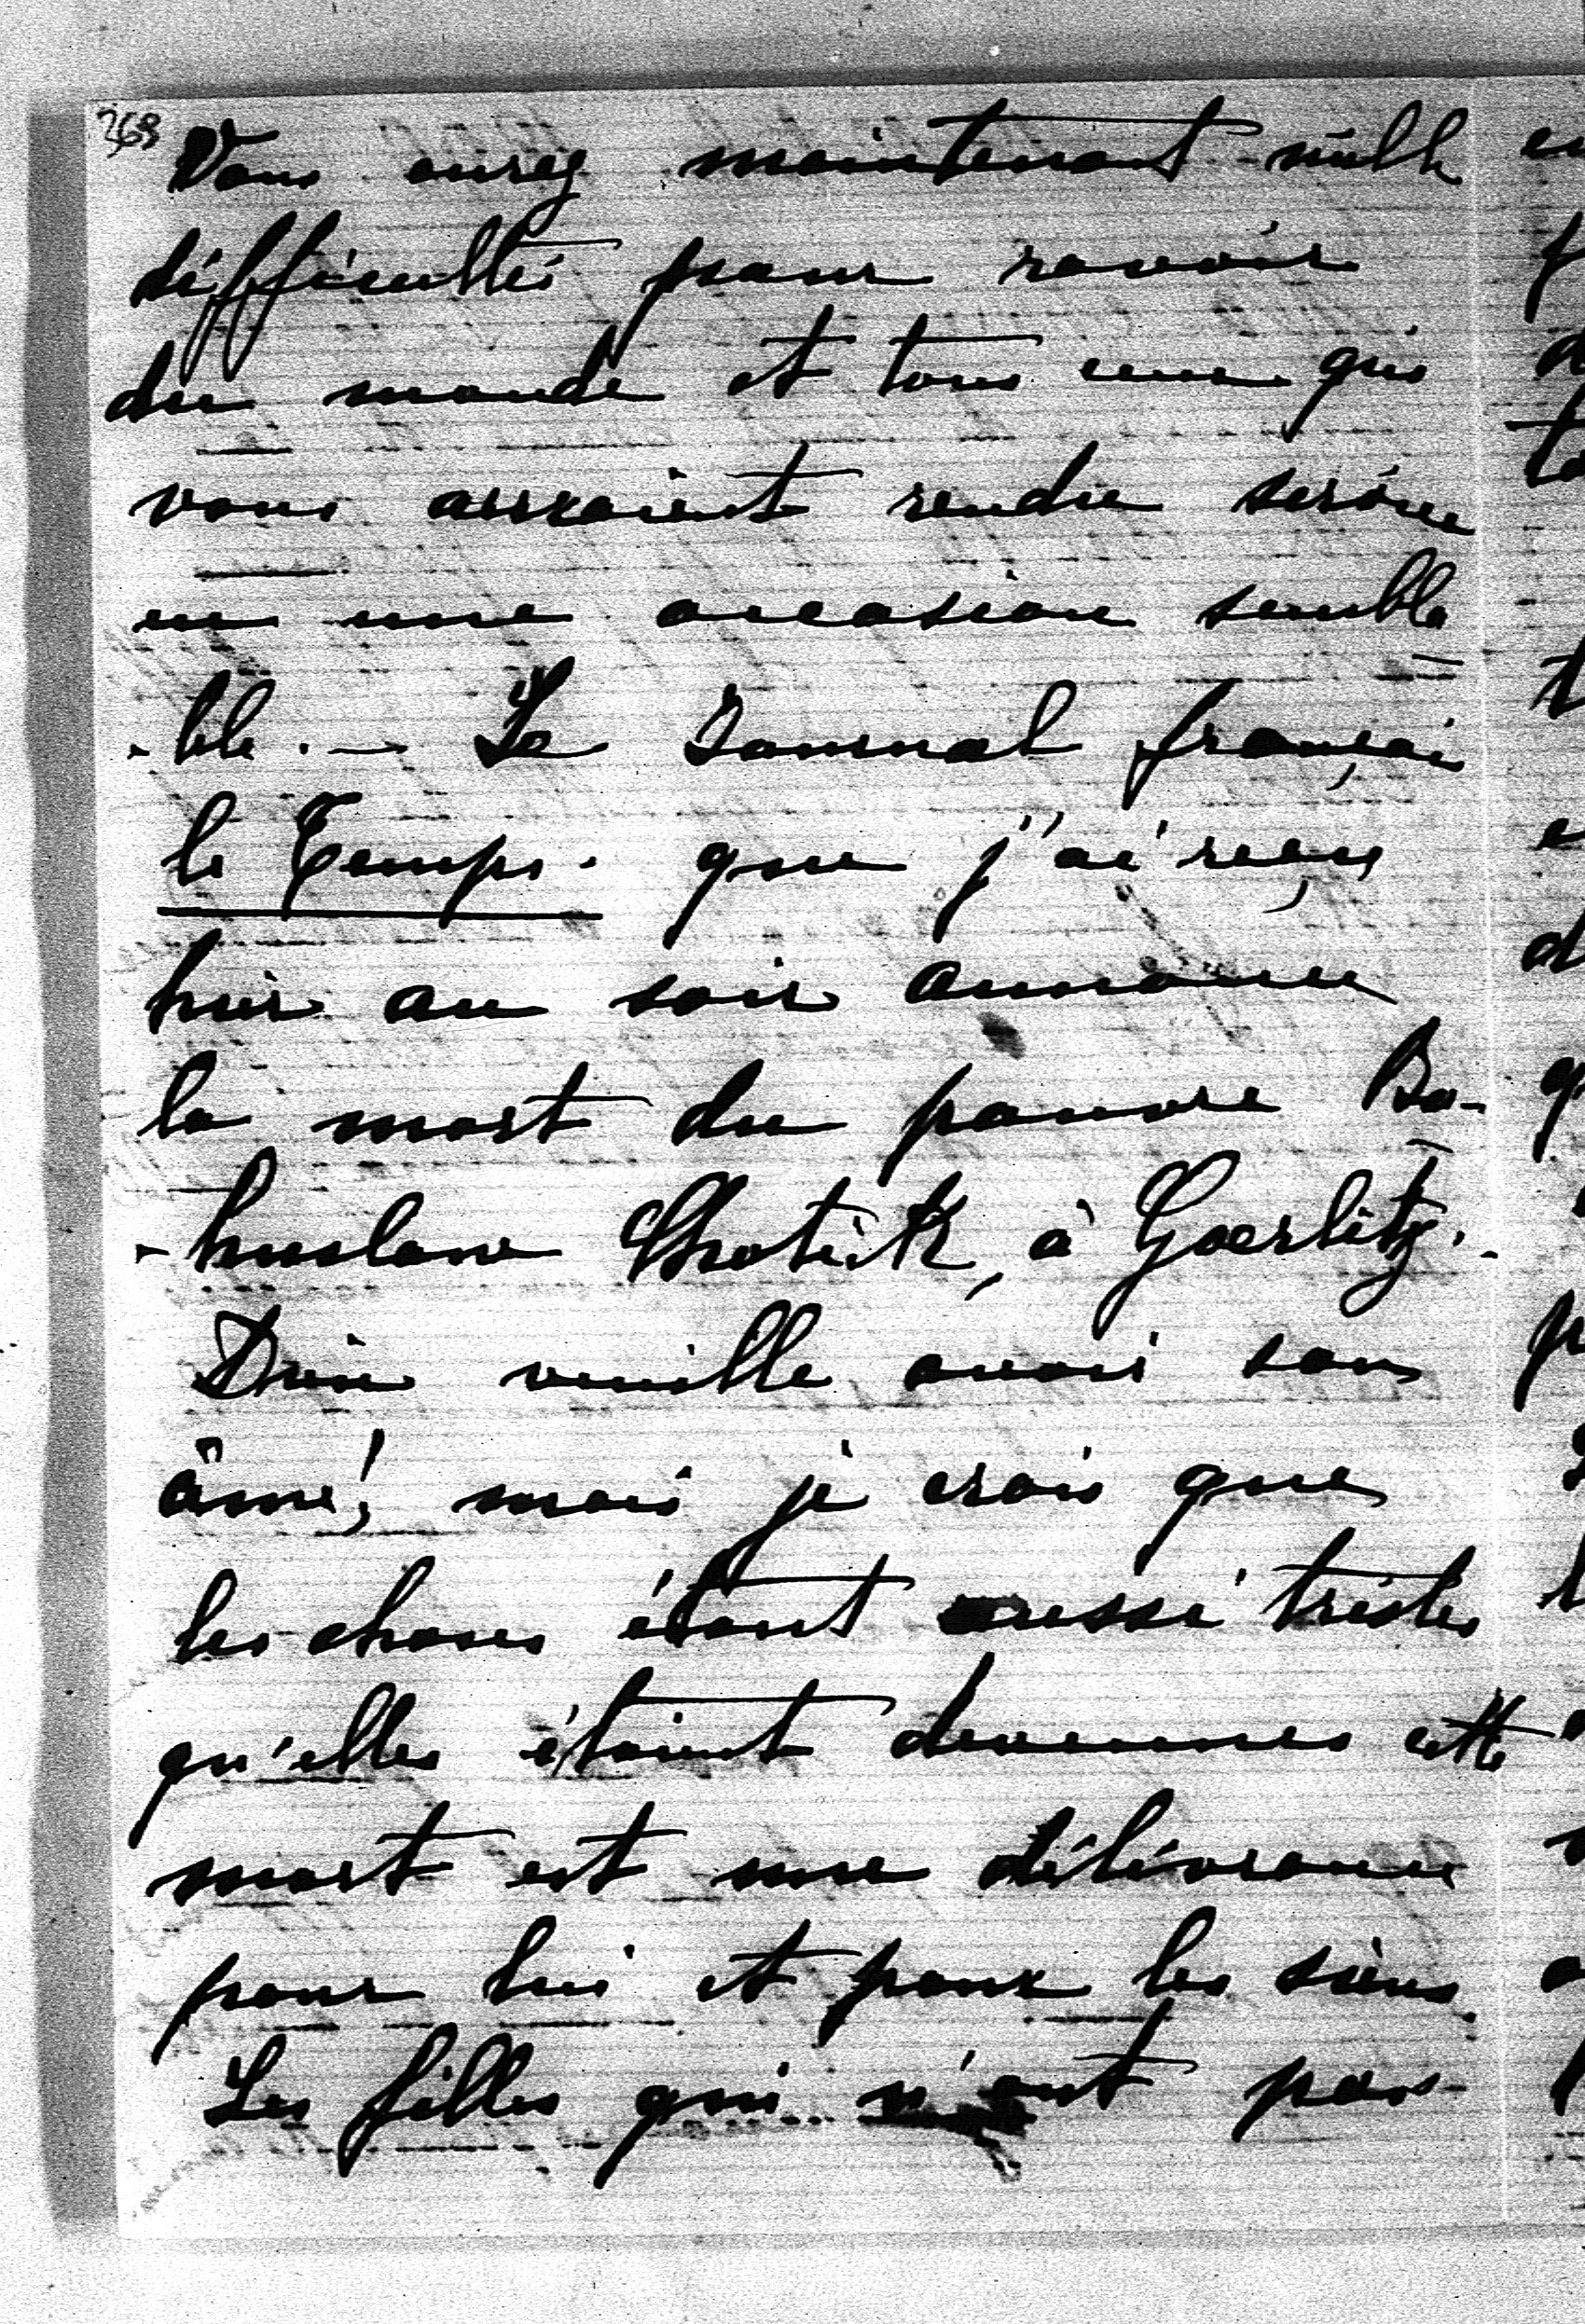 368
Vous aurez maintenant mille
difficultés pour ravoir
du monde et tous ceux qui
vous auraient rendu service
en une occasion sembla
-ble. — Le Journal français
le Temps. que j'ai reçu
hier au soir annonce
la mort du pauvre Bo-
-huslave Chotek, à Goerlitz.
Dieu veuille avoir son
âme! mais je crois que
les choses étant aussi tristes
qu'elles étaient devenues cette
mort est une délivrance
pour lui et pour les siens.
Les filles qui n'ont pas